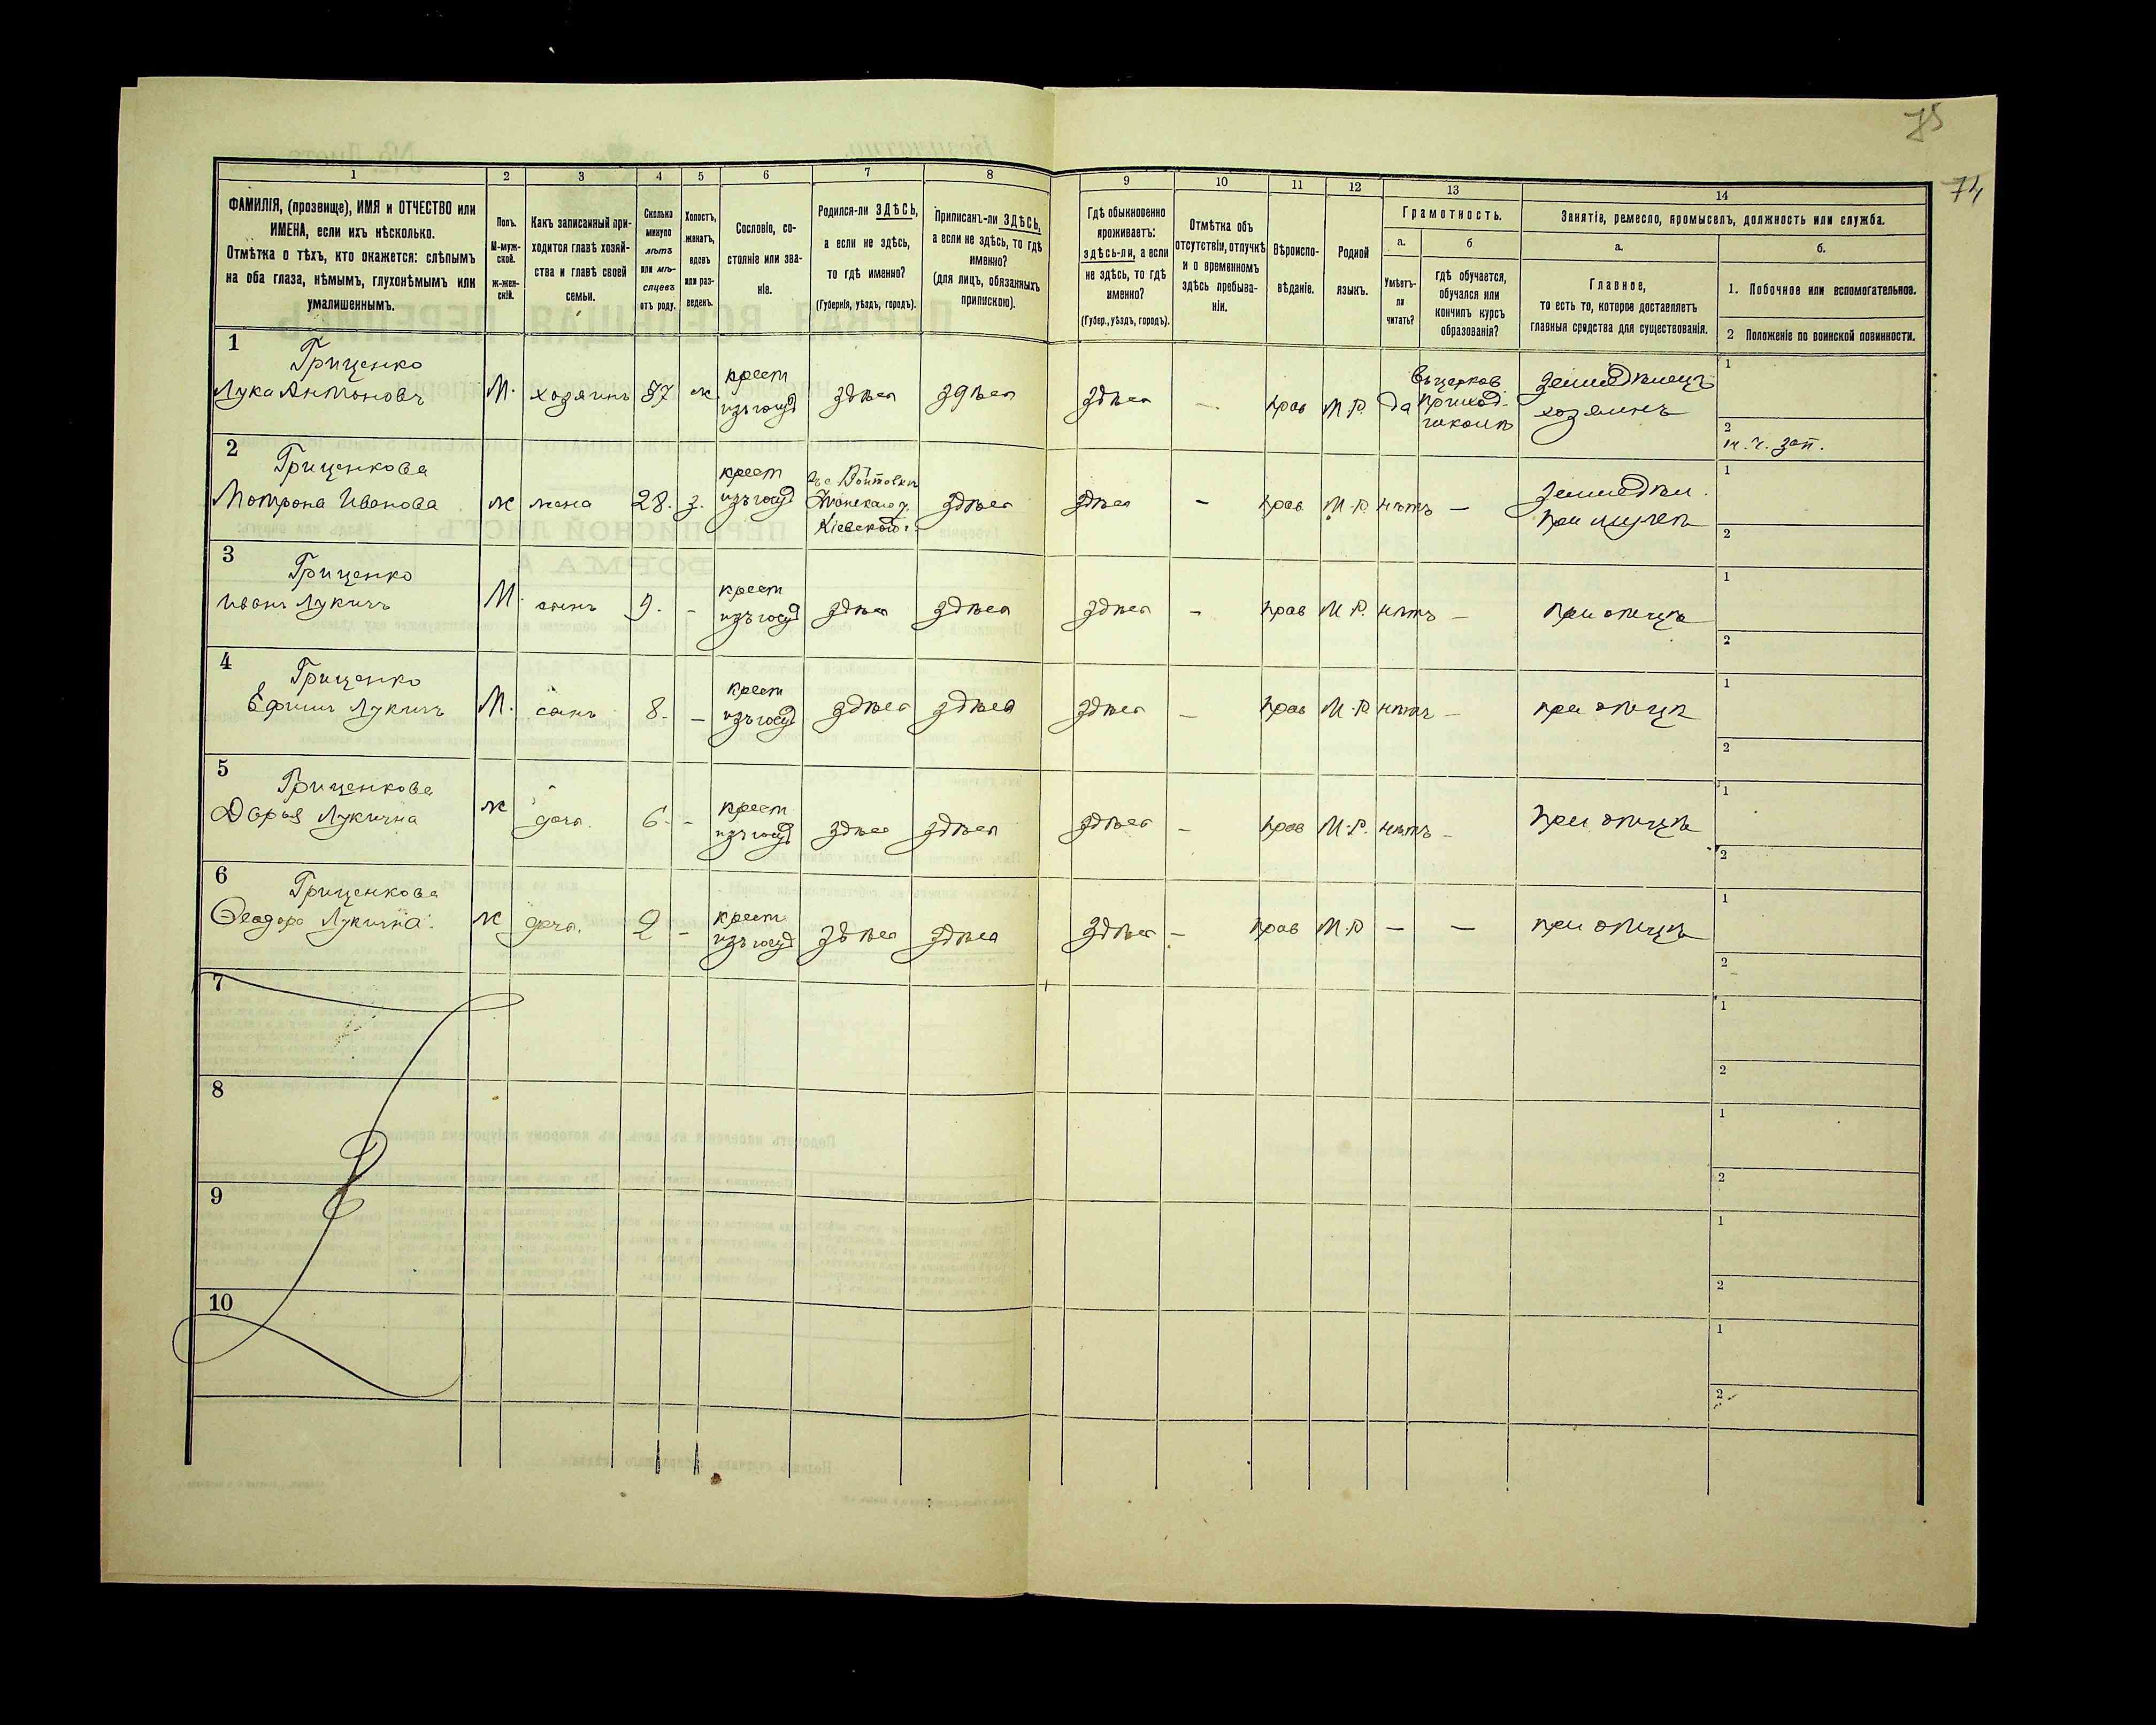 75
74
1 2 3 4 5 6 7 8 9 10 11 12 13 14
ФАМИЛІЯ, (прозвище), ИМЯ и ОТЧЕСТВО или
ИМЕНА, если ихъ нѣсколько.
Отмѣтка о тѣхъ, кто окажется: слѣпымъ
на оба глаза, нѣмымъ, глухонѣмымъ или
умалишеннымъ.
Полъ.
М-муж-
ской.
ж-жен-
скій.
Какъ записанный при-
ходится главѣ хозяй-
ства и главѣ своей
семьи.
Сколько
минуло
лѣтъ
или мѣ-
сяцевъ
отъ роду.
Холостъ,
женатъ,
вдовъ
или раз-
веденъ.
Сословіе, со-
стояніе или зва-
ніе.
Родился-ли ЗДѢСЬ,
а если не здѣсь,
то гдѣ именно?
(Губернія, уѣздъ, городъ).
Приписанъ-ли ЗДѢСЬ,
а если не здѣсь, то гдѣ
именно?
(для лицъ, обязанныхъ
припискою).
Гдѣ обыкновенно
проживаетъ:
здѣсь-ли, а если
не здѣсь, то гдѣ
именно?
(Губер., уѣздъ, городъ).
Отмѣтка объ
отсутствіи, отлучкѣ
и о временномъ
здѣсь пребыва-
ніи.
Вѣроиспо-
вѣданіе.
Родной
языкъ.
Грамотность.
а.
Умѣетъ-
ли
читать?
б
гдѣ обучается,
обучался или
кончилъ курсъ
образованія?
Занятія, ремесло, промыселъ, должность или служба.
а.
Главное,
то есть то, которое доставляетъ
главныя средства для существованія.
б.
1. Побочное или вспомогательное.
2 Положеніе по воинской повинности.
1
Гриценко
Лука Антоновъ
М.
хозяинъ
37
ж.
крест
изъ госуд
здѣсь
здѣсь
здѣсь
—
прав
М.Р.
да
Въ церков.
приход-
школѣ
Земледѣлецъ
хозяинъ
1
2
2
Гриценкова
Мотрона Иванова
ж
жена
28.
з.
крест
изъ госуд
Кіевской г.
здѣсь
здѣсь
—
прав
М.Р.
нѣтъ
—
Земледѣл.
при мужѣ
1
2
3
Гриценко
Иванъ Лукичъ
М.
сынъ
9.
-
крест
изъ госуд
здѣсь
здѣсь
здѣсь
—
прав
М.Р.
нѣтъ
—
при отцѣ
1
2
4
Гриценко
Ефимъ Лукичъ
М.
сынъ
8.
—
крест
изъ госуд
здѣсь
здѣсь
здѣсь
—
прав
М.Р.
нѣтъ
—
при отцѣ
1
2
5
Гриценкова
Дарья Лукична
ж
дочь.
6.
-
крест
изъ госуд
здѣсь
здѣсь
здѣсь
—
прав
М.Р.
нѣтъ
—
при отцѣ
1
2
6
Гриценкова
Ѳеодора Лукична.
ж
дочь.
2
-
крест
изъ госуд
здѣсь
здѣсь
здѣсь
—
прав
М.Р.
—
—
при отцѣ
1
2
7
1
2
8
1
2
9
1
2
10
1
2